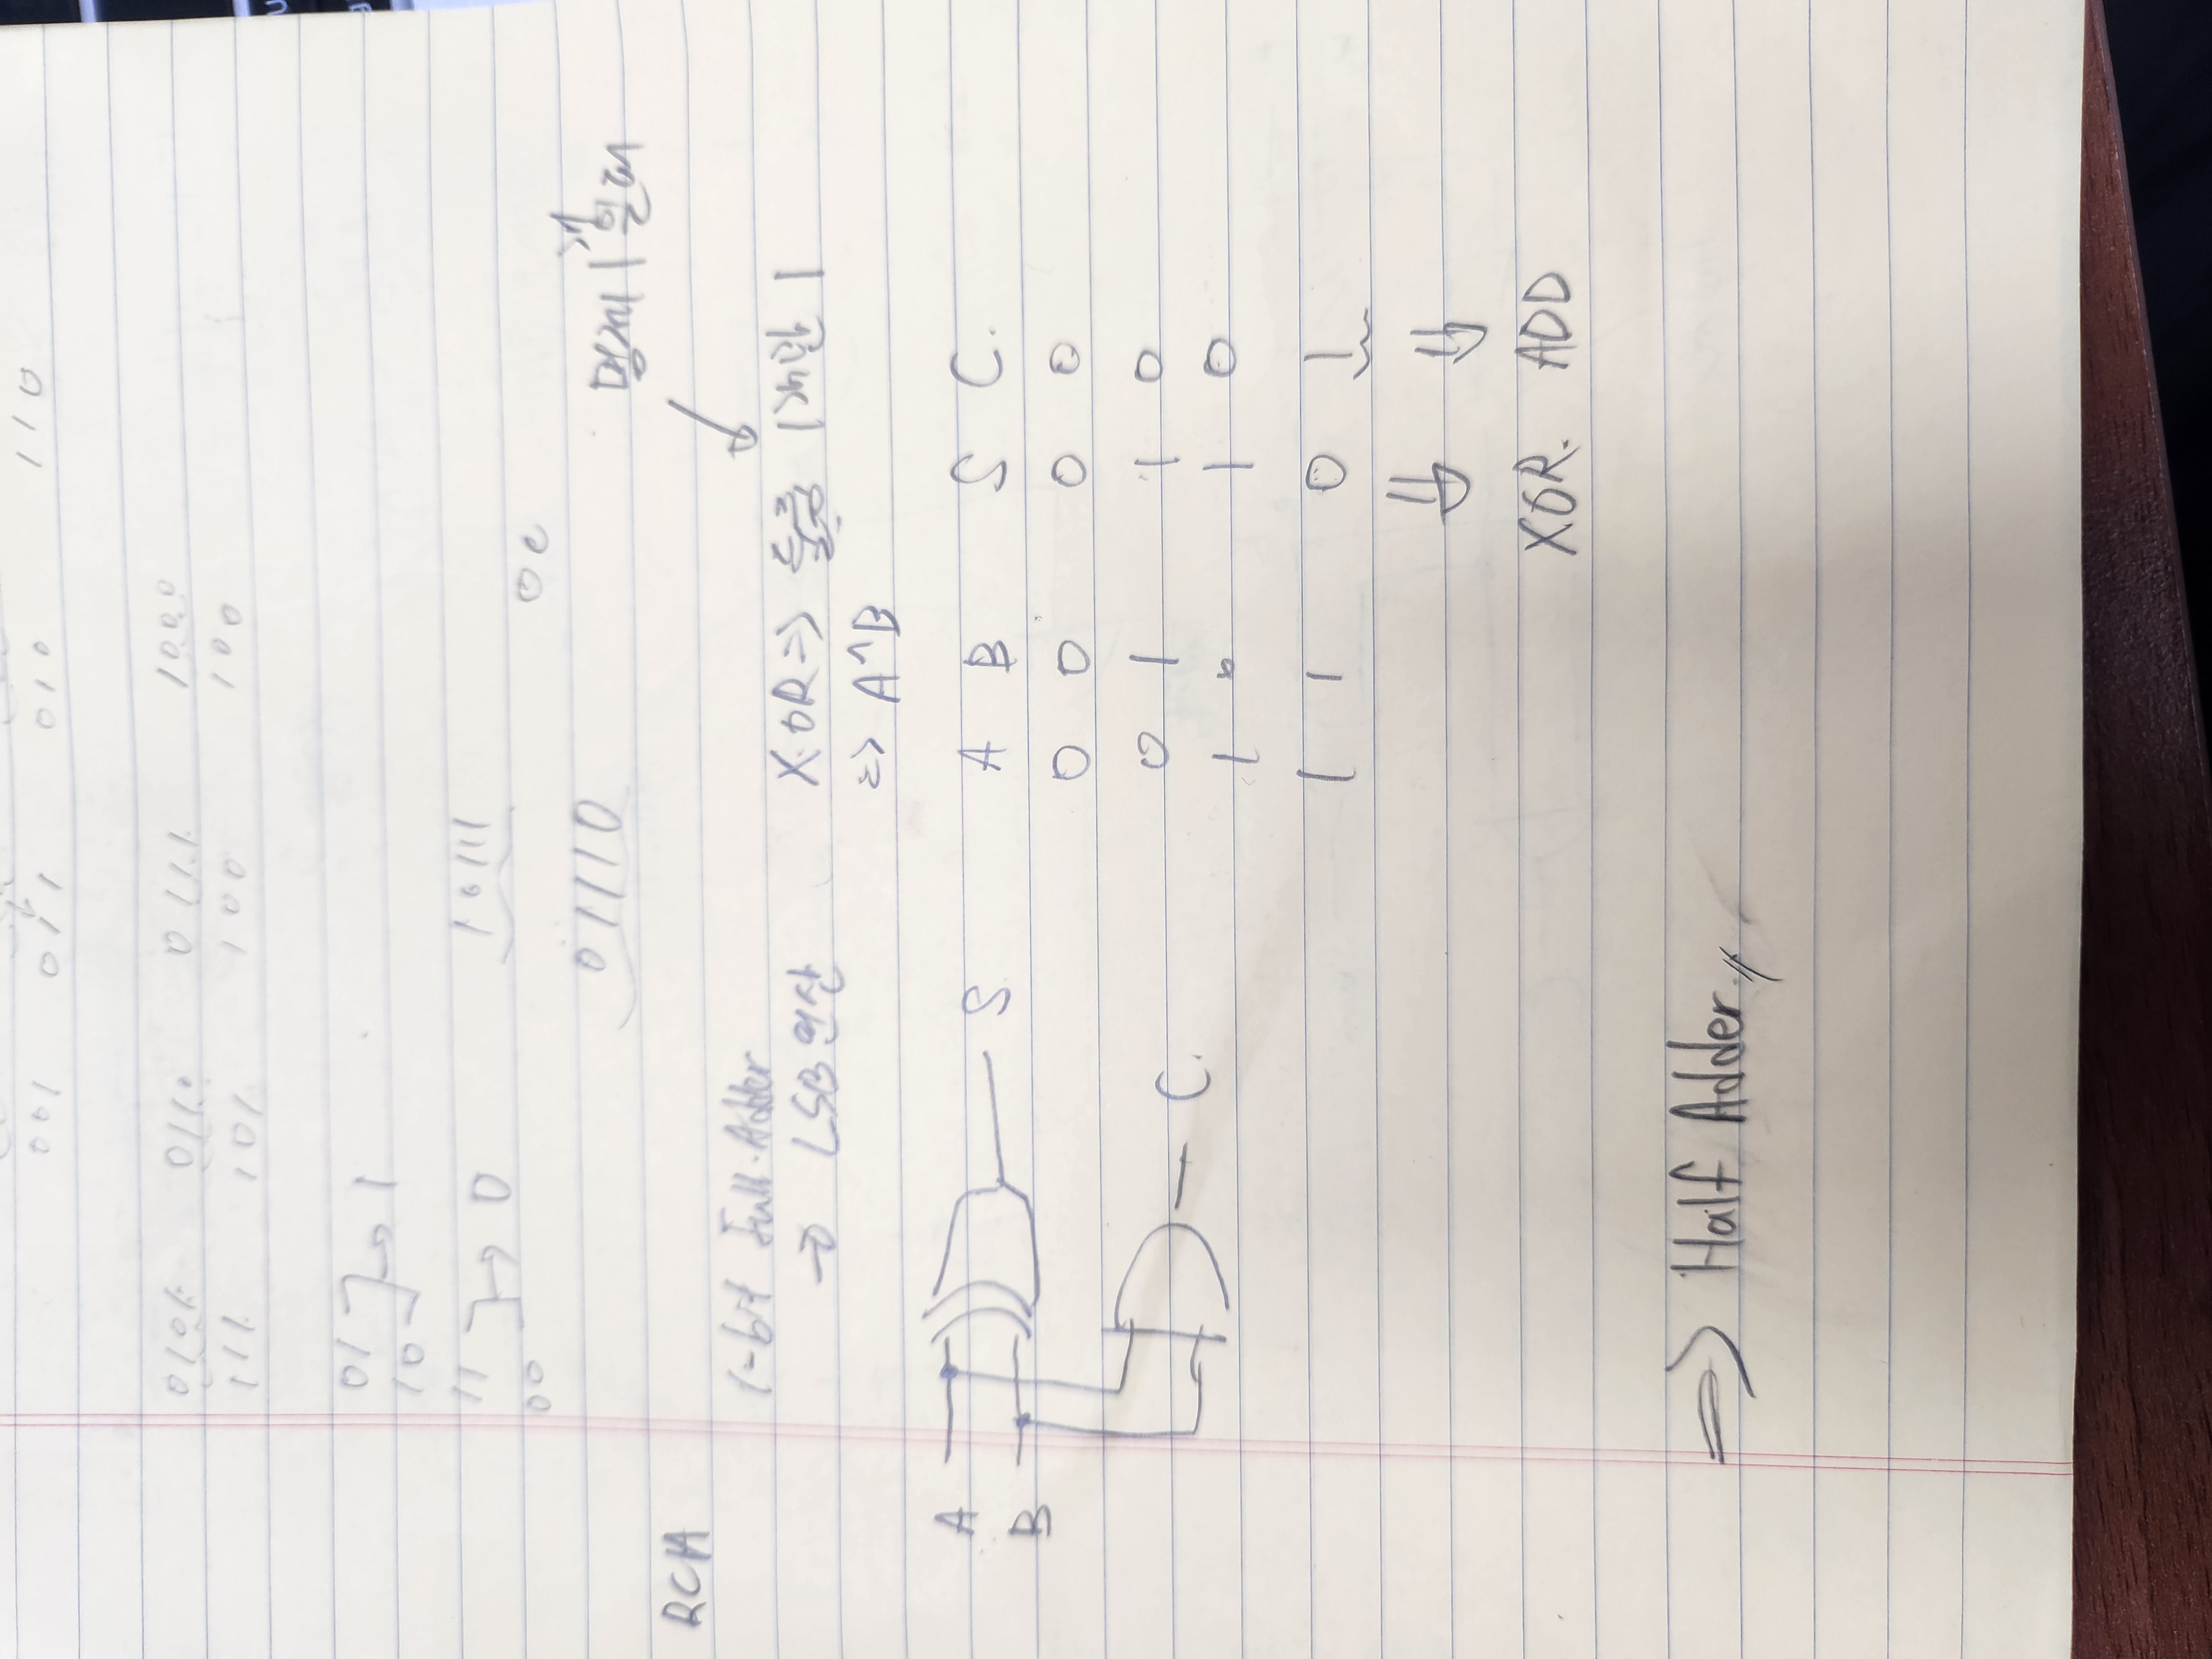 001 011 010 110
0101 0110 0111 1000
111 101 100 100
01
10 → 1
11
00 → 0
10111
01110
RCA
명제 1개 일 때
1-bit Full Adder
→ LSB 연산
XOR ⇒ 둘중 1개만 1
=> A^B
A
B
S
C.
A B S C.
0 0 0 0
0 1 1 0
1 0 1 0
1 1 0 1
XOR. ADD
⇒ Half Adder